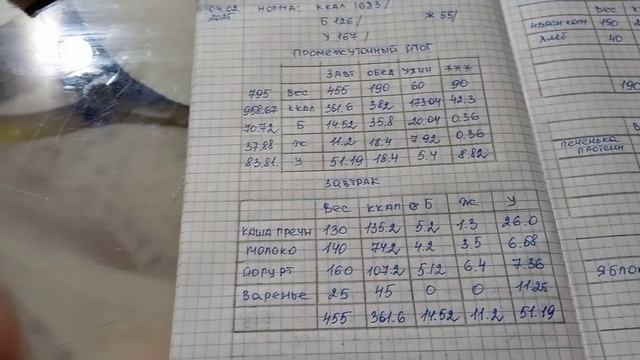 04.02
2025
НОРМА: ККАЛ 1683/
Б 126/ Ж 55/
У 167/
ПРОМЕЖУТОЧНЫЙ ИТОГ
ЗАВТ ОБЕД УЖИН ***
795 ВЕС 455 190 60 90
958.67 ККАЛ 361.6 382 173.04 42.3
70.72 Б 14.52 35.8 20.04 0.36
37.88 Ж 11.2 18.4 7.92 0.36
83.81. У 51.19 18.4 5.4 8.82
ЗАВТРАК
ВЕС ККАЛ Б Ж У
КАША ГРЕЧН 130 135.2 5.2 1.3 26.0
МОЛОКО 140 74.2 4.2 3.5 6.58
ЙОГУРТ 160 107.2 5.12 6.4 7.36
ВАРЕНЬЕ 25 45 0 0 11.25
455 361.6 14.52 11.2 51.19
ВЕС
150
ХЛЕБ 40
190
ПЕЧЕНЬКА
ПРОТЕИН
ЯБЛО